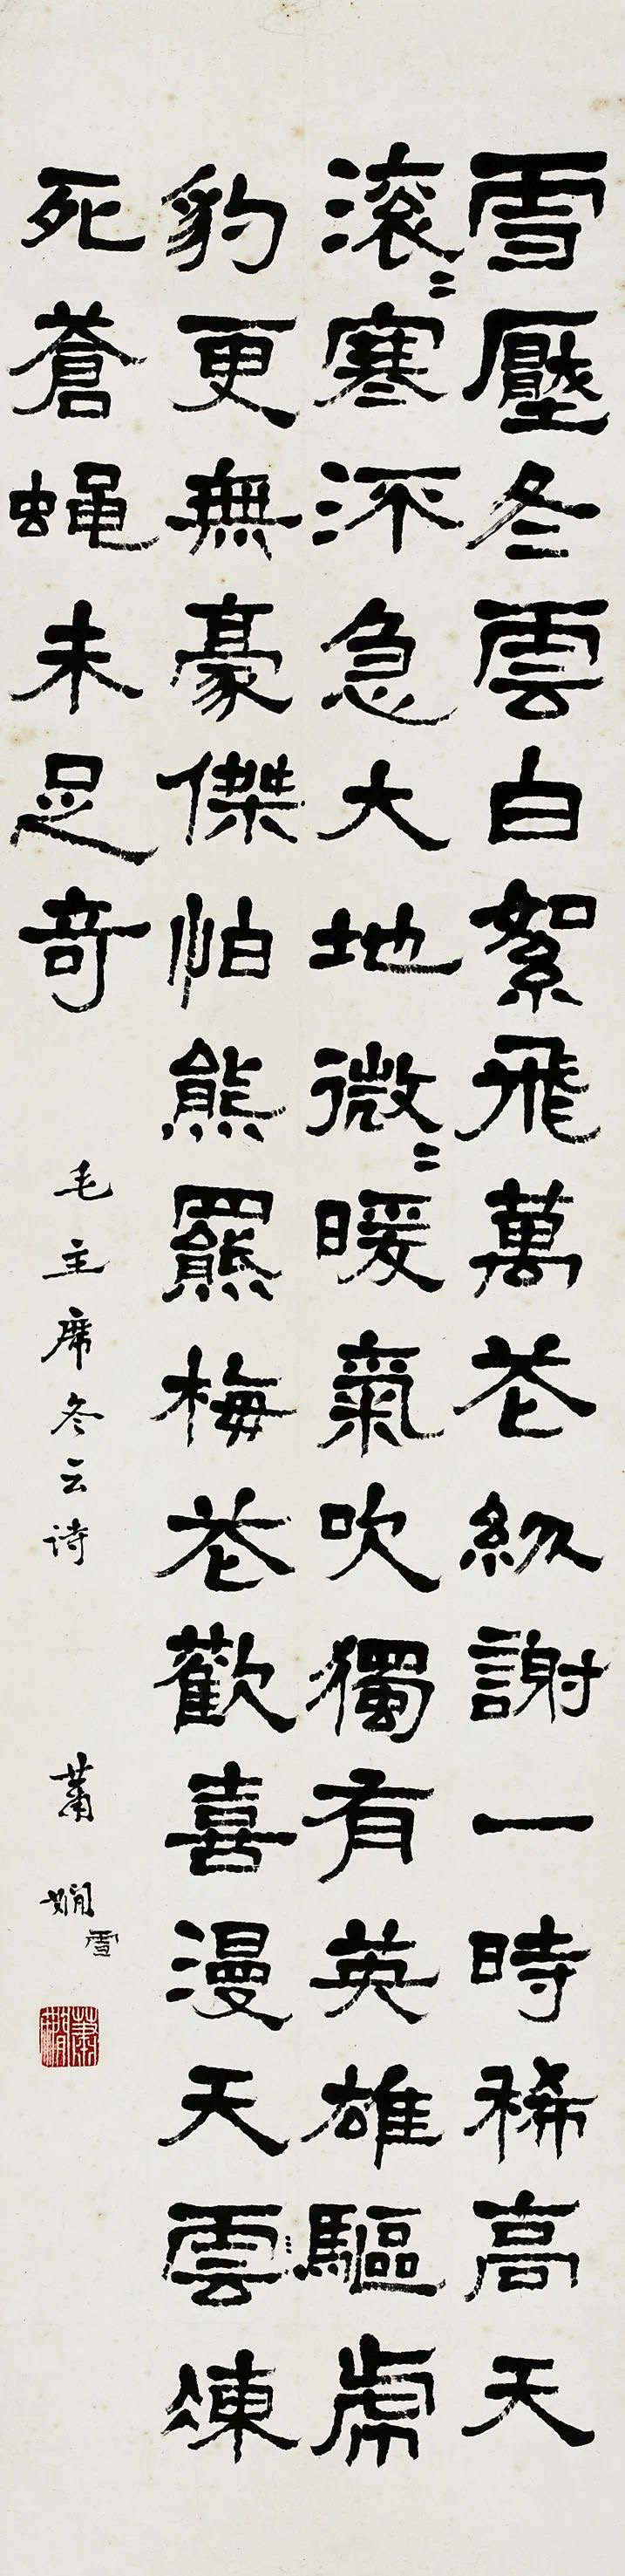 雪壓冬雲白絮飛萬花紛謝一時稀高天
滾〻寒流急大地微〻暖氣吹獨有英雄驅虎
豹更無豪傑怕熊羆梅花歡喜漫天雲凍
死蒼蝇未足奇
毛主席冬云诗
蕭嫻
雪
蕭嫻